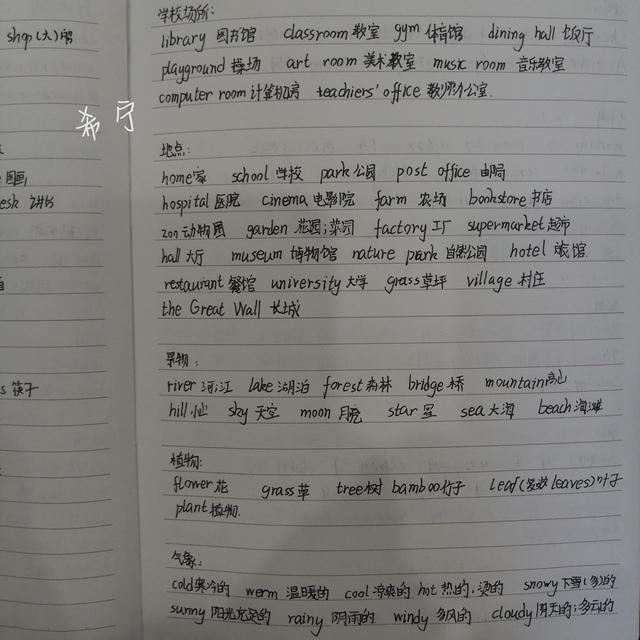 shop(大)商
图画
esk 讲台
s 筷子
希宁
学校场所:
library 图书馆 classroom 教室 gym 体育馆 dining hall 饭厅
playground 操场 art room 美术教室 music room 音乐教室
computer room 计算机房 teachiers' office 教师办公室.
地点:
home家 school 学校 park公园 post office 邮局
hospital 医院 cinema 电影院 farm 农场 bookstore 书店
zoo 动物园 garden 花园;菜园 factory 工厂 supermarket 超市
hall 大厅 museum 博物馆 nature park 自然公园 hotel 旅馆
restaurant 餐馆 university 大学 grass草坪 village 村庄
the Great Wall 长城
景物:
river 河;江 lake 湖泊 forest 森林 bridge 桥 mountain 高山
hill 小山 sky 天空 moon 月亮 star 星 sea 大海 beach 海滩
植物:
flower 花 grass 草 tree 树 bamboo 竹子 leaf(复数 leaves)叶子
plant 植物.
气象:
cold 寒冷的 werm 温暖的 cool 凉爽的 hot 热的;烫的 snowy 下雪(多)的
sunny 阳光充足的 rainy 阴雨的 windy 多风的 cloudy 阴天的;多云的